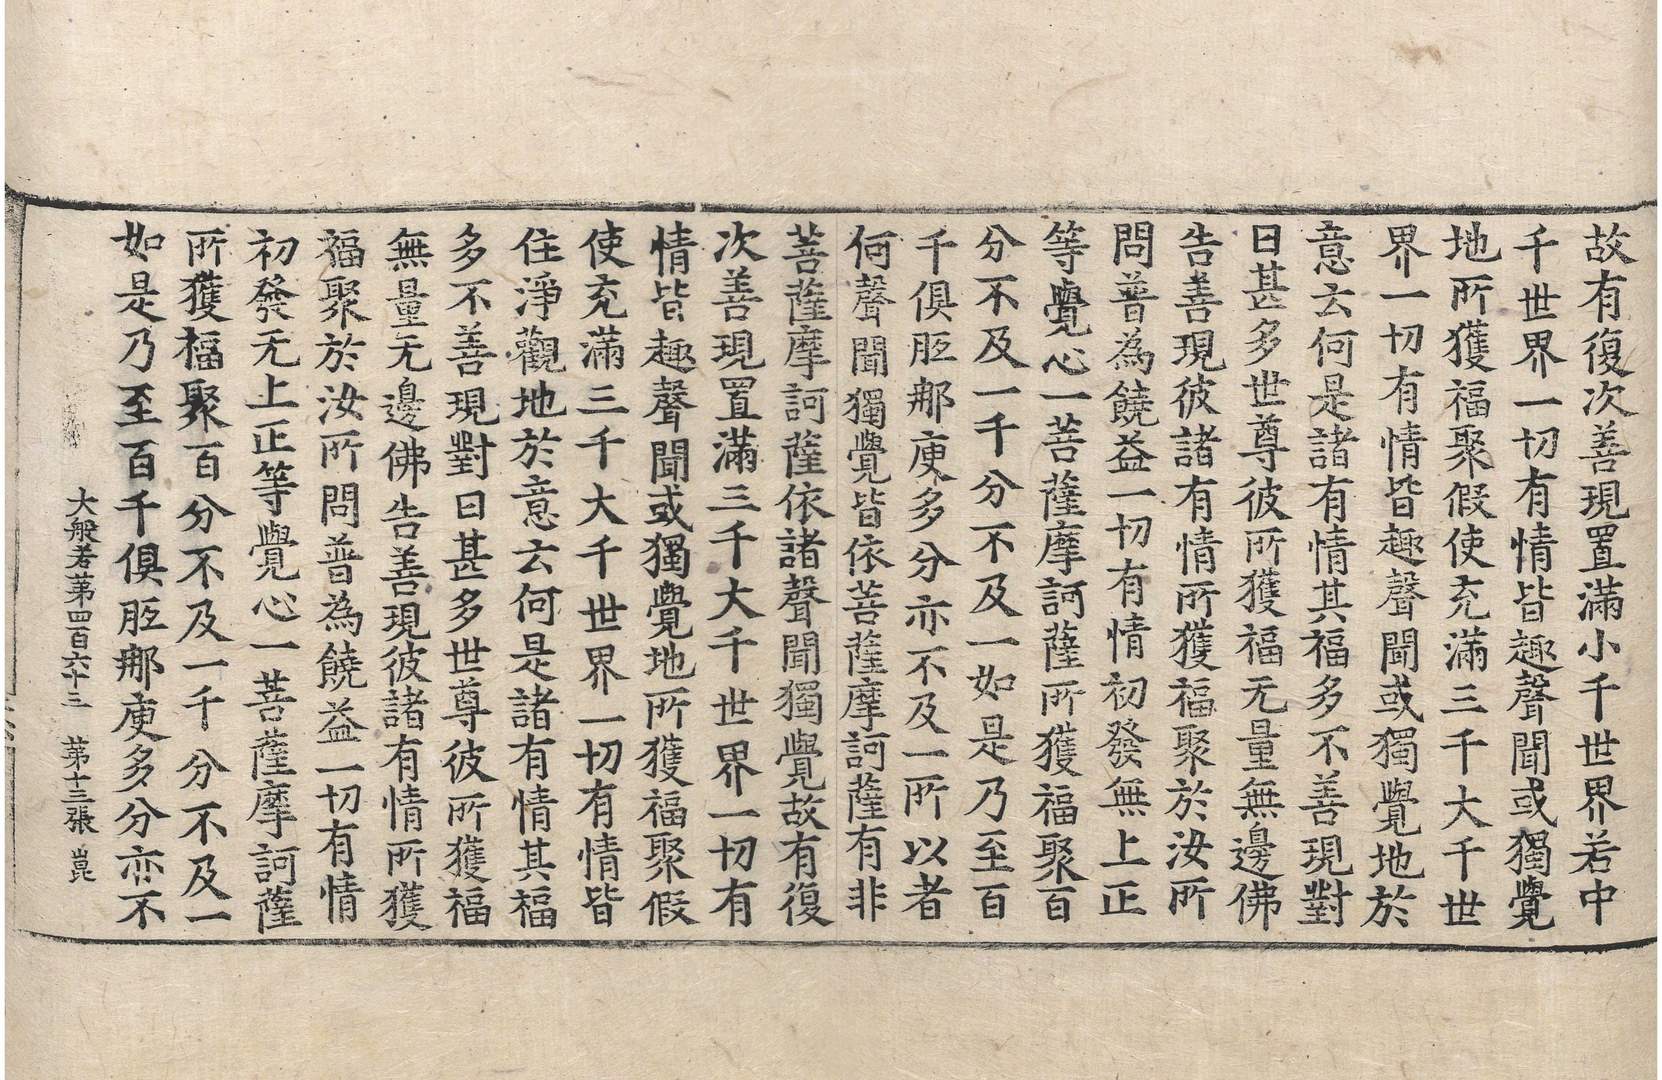 故有復次善現置滿小千世界若中
千世界一切有情皆趣聲聞或獨覺
地所獲福聚假使充滿三千大千世
界一切有情皆趣聲聞或獨覺地於
意云何是諸有情其福多不善現對
曰甚多世尊彼所獲福无量無邊佛
告善現彼諸有情所獲福聚於汝所
問普為饒益一切有情初發無上正
等覺心一菩薩摩訶薩所獲福聚百
分不及一千分不及一如是乃至百
千俱胝那庾多分亦不及一所以者
何聲聞獨覺皆依菩薩摩訶薩有非
菩薩摩訶薩依諸聲聞獨覺故有復
次善現置滿三千大千世界一切有
情皆趣聲聞或獨覺地所獲福聚假
使充滿三千大千世界一切有情皆
住淨觀地於意云何是諸有情其福
多不善現對曰甚多世尊彼所獲福
無量无邊佛告善現彼諸有情所獲
福聚於汝所問普為饒益一切有情
初發无上正等覺心一菩薩摩訶薩
所獲福聚百分不及一千分不及一
如是乃至百千俱胝那庾多分亦不
大般若第四百六十三 第十三張 崑